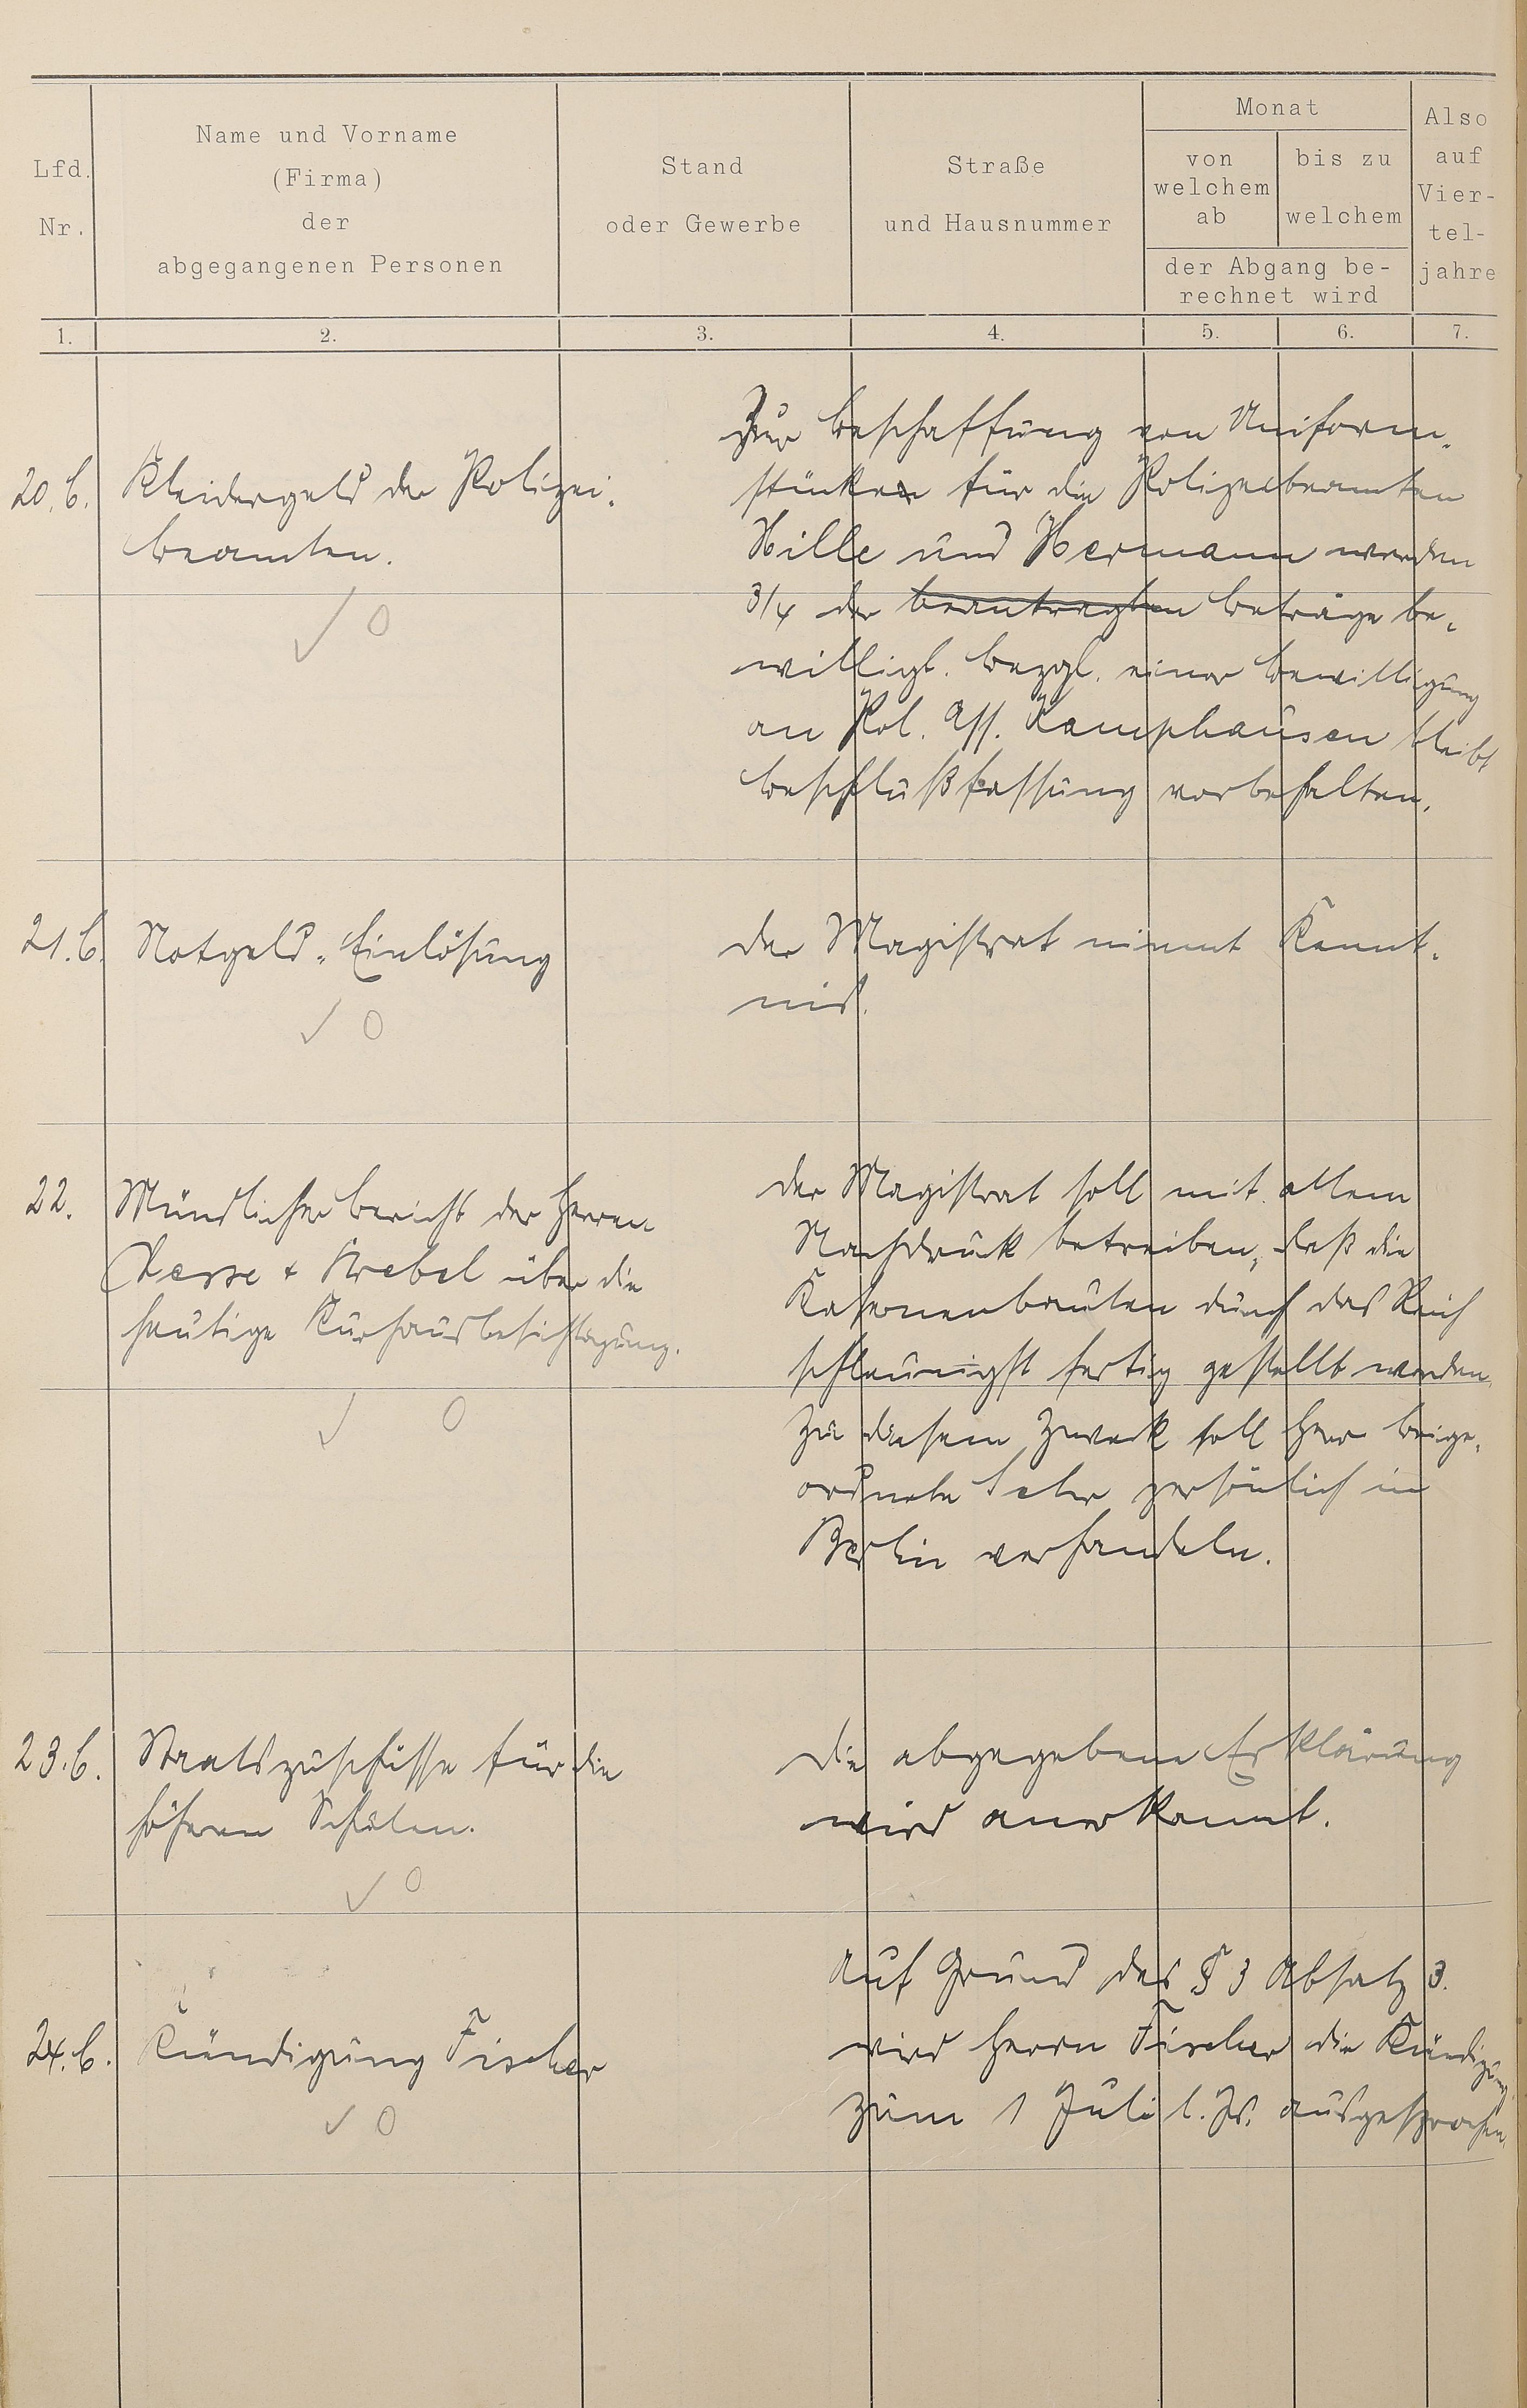 Lfd. Nr.
Name und Vorname
(Firma)
der
abgegangenen Personen
Stand
oder Gewerbe
Straße
und Hausnummer
Monat
von welchem ab
bis zu welchem
der Abgang be-
rechnet wird
Also auf Vier-
tel-
jahre
1. 2. 3. 4. 5. 6. 7.
20.b. Kleidergeld der Polizei-
beamten.
Zur Beschaffung von Uniform-
stücken für die Polizeibeamten
Hille und Hermann werden
3/4 der beantragten Beträge be-
willigt. Bezgl. einer Bewilligung
an Pol. Ass. Kamphausen bleibt
Beschlußfassung vorbehalten.
21.b. Notgeld-Einlösung
Der Magistrat nimmt Kennt-
nis.
22. Mündlicher Bericht der Herren
& Krebel über die
heutige Kurhausbesichtigung.
Der Magistrat soll mit allem
Nachdruck betreiben, daß die
Kasernenbauten durch das Reich
schleunigst fertig gestellt werden.
Zu diesem Zweck soll Herr Beige-
ordnete persönlich in
Berlin verhandeln.
23.b. Staatszuschüsse für die
höheren Schulen.
Die abgegebene Erklärung
wird anerkannt.
24.b. Kündigung Fischer
Auf Grund des § 3 Absatz 3.
wird Herrn Fischer die Kündigung
zum 1 Juli l. Js. ausgesprochen.